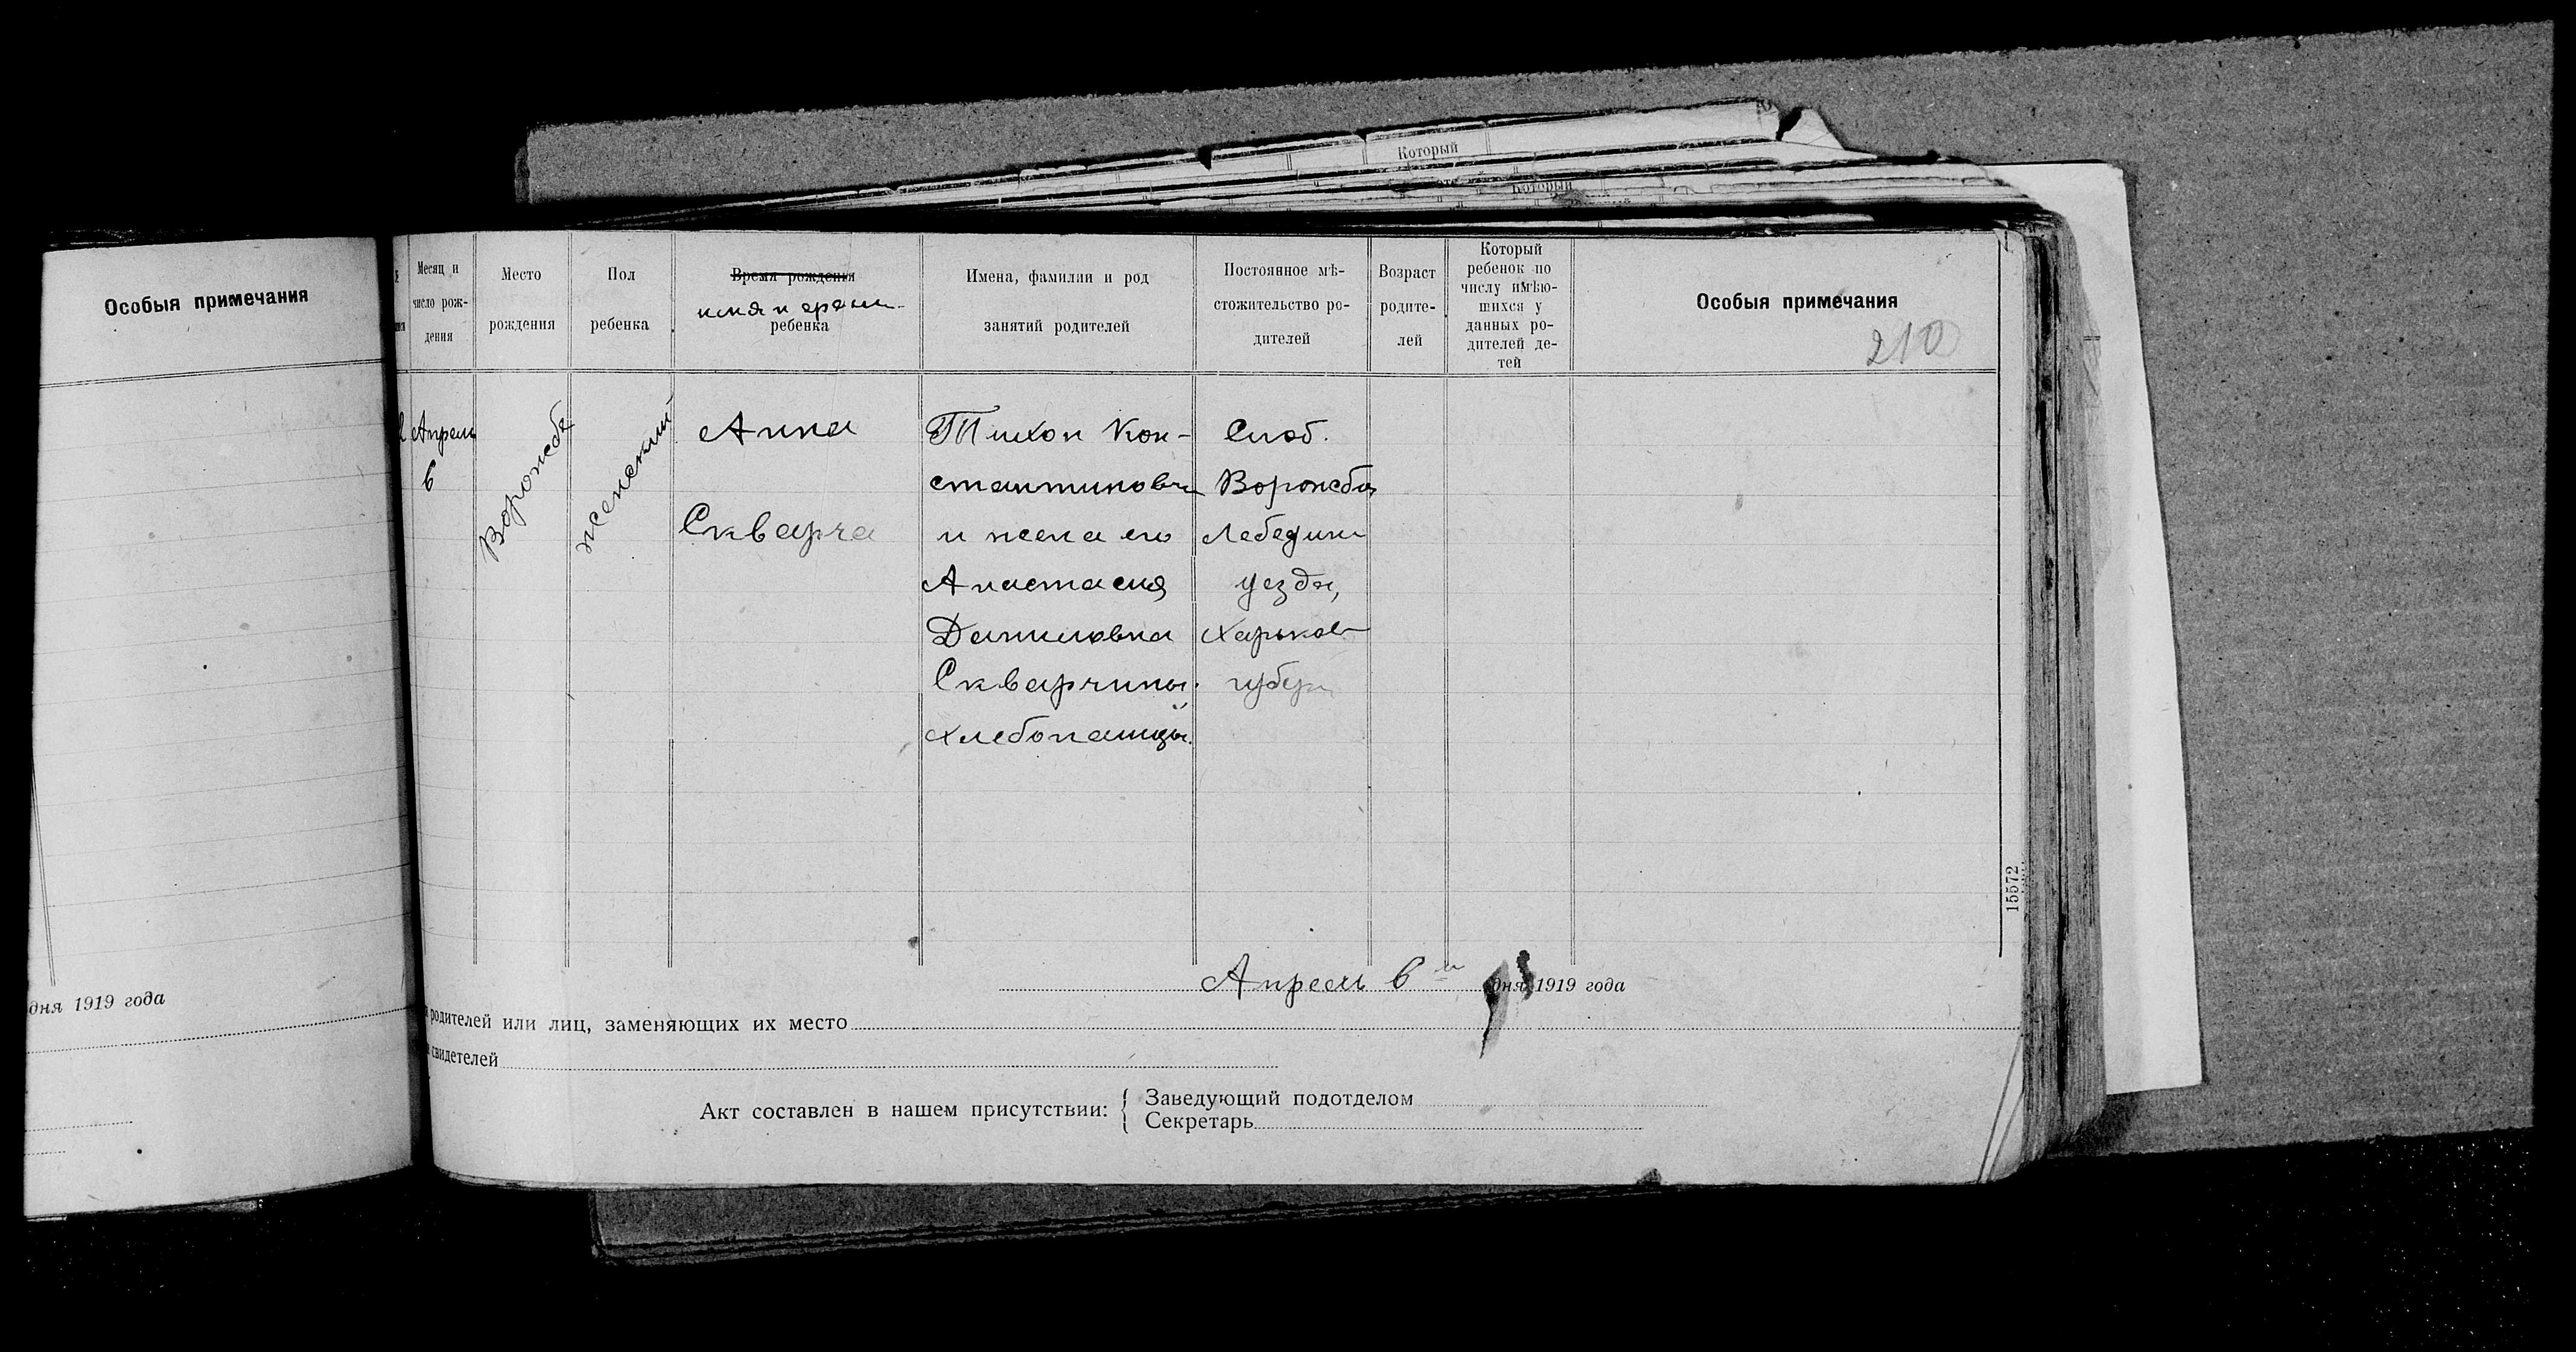 Который
Который
Особыя примечания
дня 1919 года
Месяц и
число рож-
дения
Место
рождения
Пол
ребенка
Время рождения
имя и
ребенка
Имена, фамилии и род
занятий родителей
Постоянное мѣ-
стожительство ро-
дителей
Возраст
родите-
лей
Который
ребенок по
числу имѣю-
шихся у
данных ро-
дителей де-
тей
Особыя примечания
210
Апрель
6
Ворожба
женский
Анна
Скварча
Тихон Кон-
стантинович
и жена его
Анастасия
Даниловна
Скварчины.
хлебопашцы.
Слоб.
Ворожба
Лебедин
уезда,
Харьков
губерн
15572
Апрель 6 дня 1919 года
родителей или лиц, заменяющих их место
свидетелей
Акт составлен в нашем присутствии:
Заведующий подотделом
Секретарь